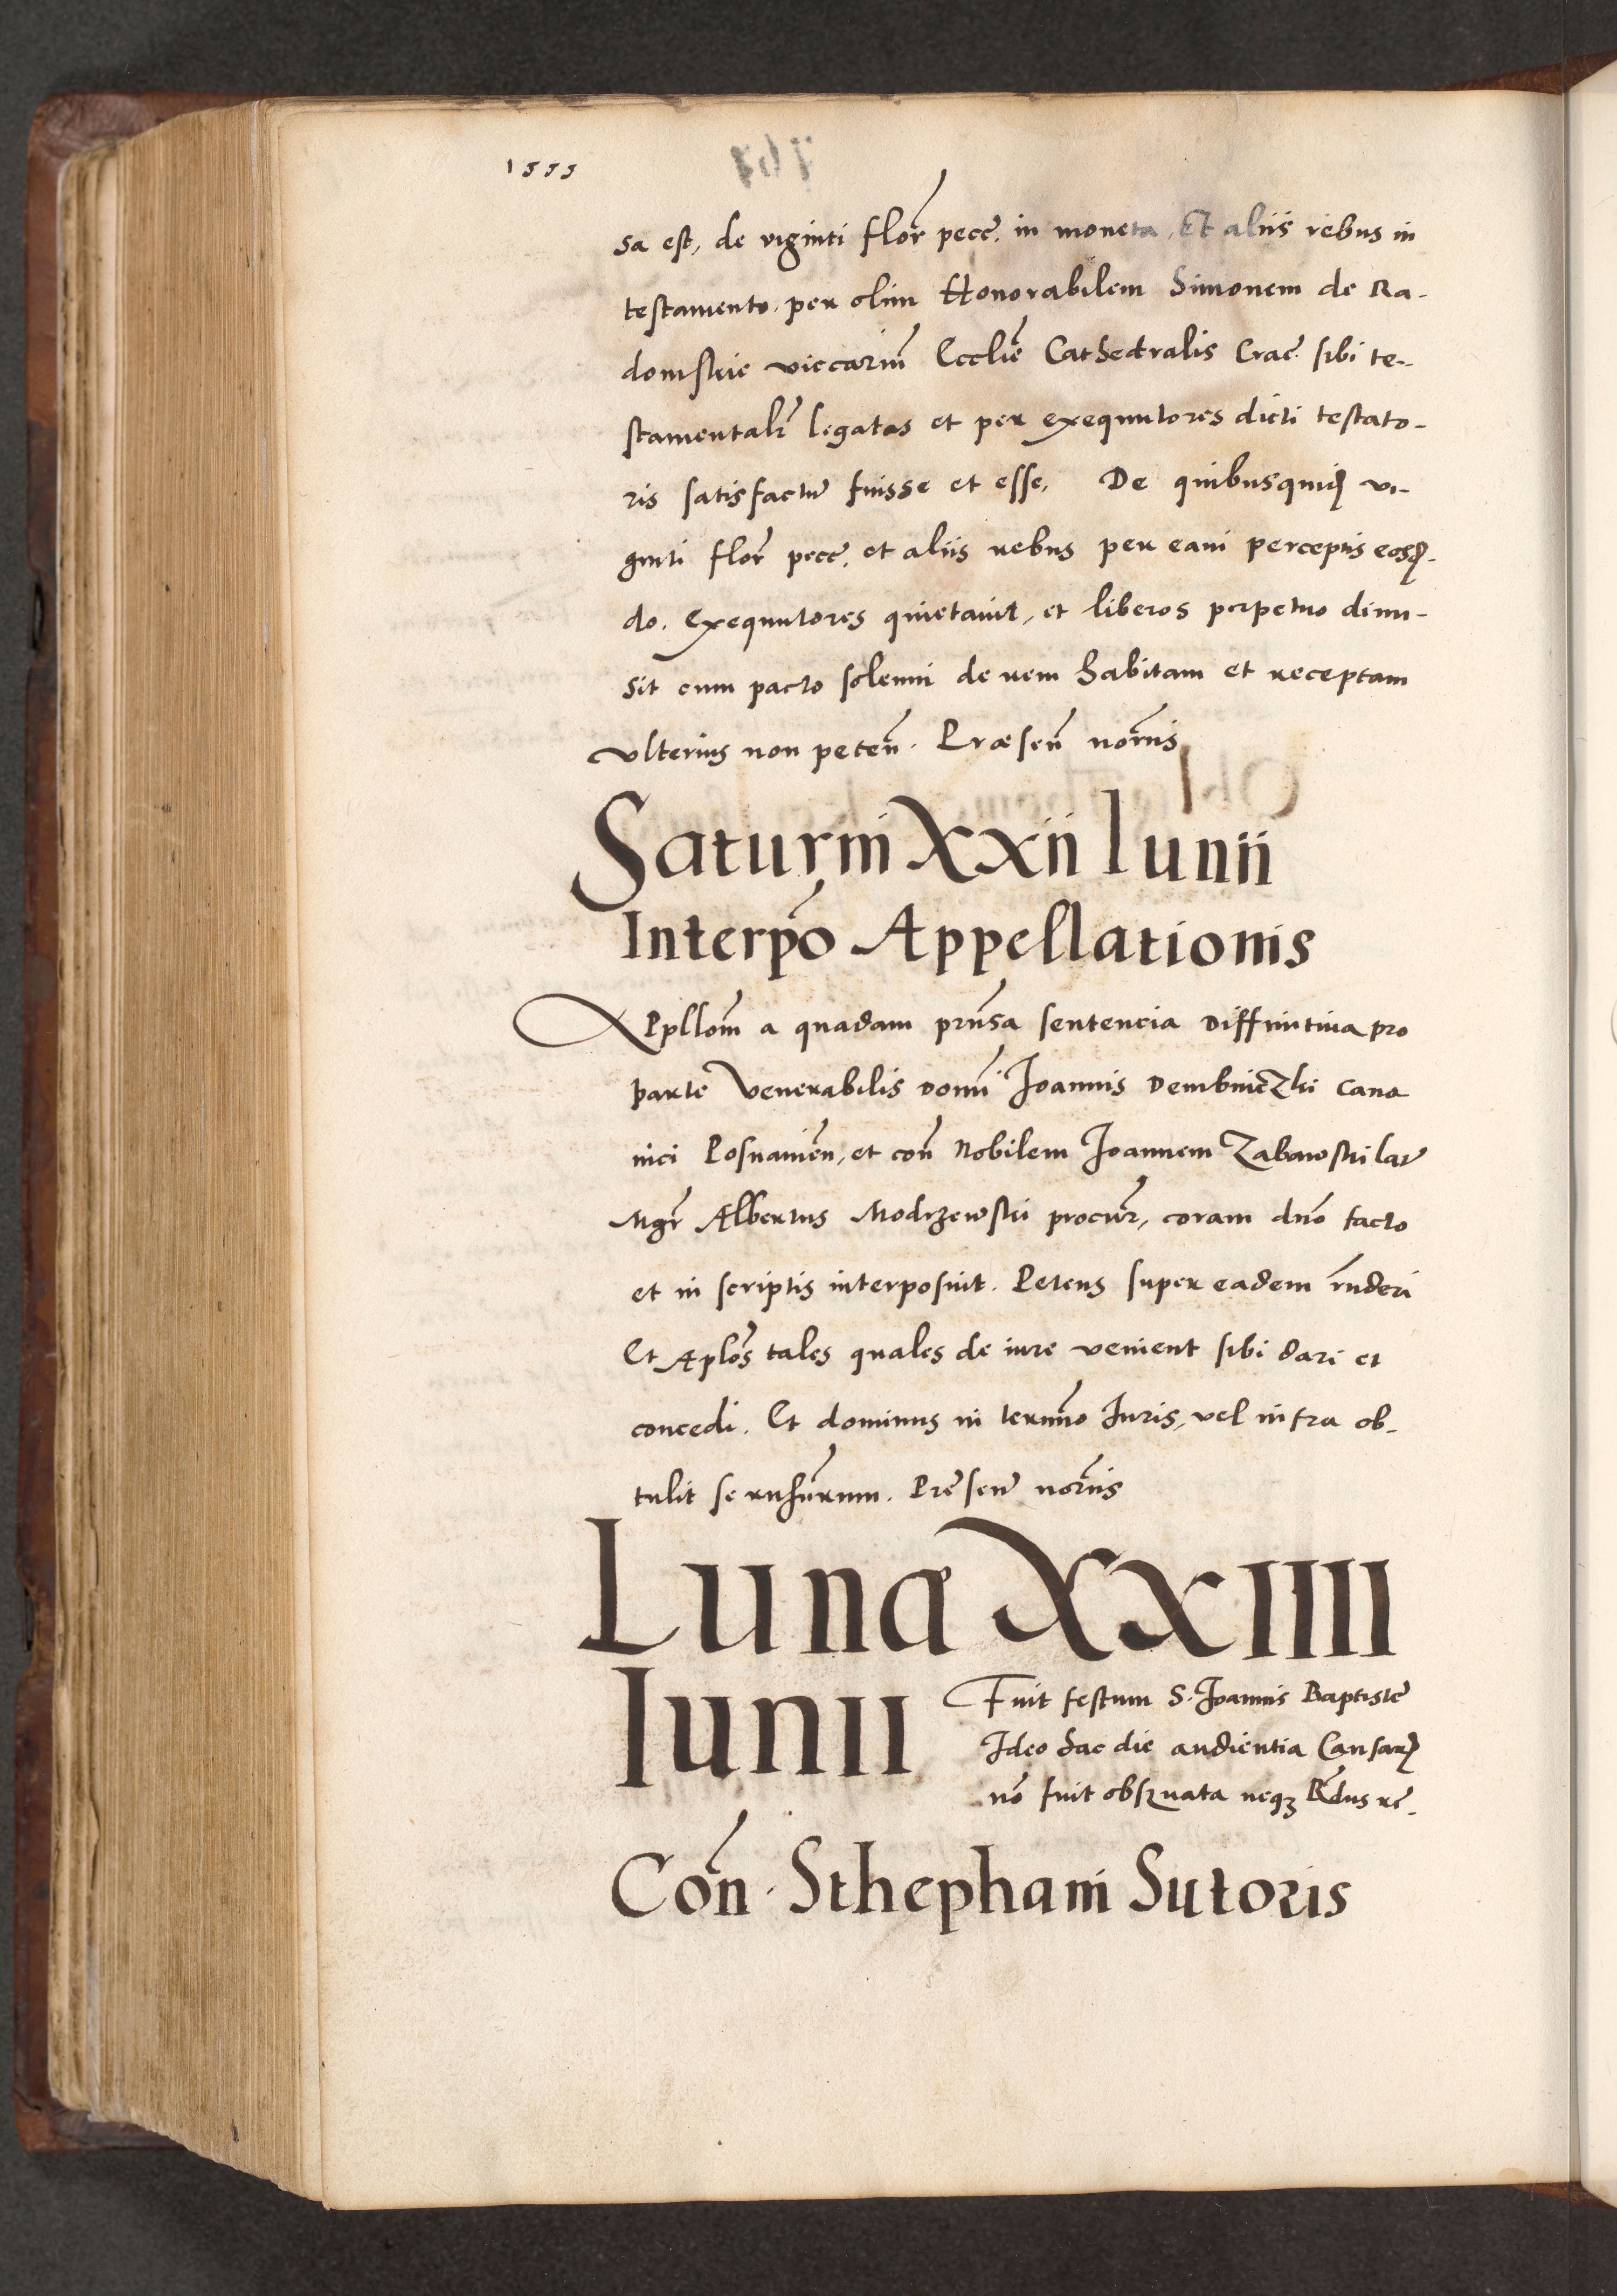 1555
sa est, de viginti florͫ pecc̃. in moneta, Et aliis rebus in
testamento, per olim Honorabilem Simonem de Ra-
domskie viccariũ Eccliẽ Cathedralis Crac̃ sibi te-
stamentalr̃ legatas et per exequutores dicti testato-
ris satisfactũ fuisse et esse, De quibusquidẽ vi-
ginti florͫ pecc̃, et aliis rebus per eam perceptis eosdẽ-
do. Exequutores quietavit, et liberos perpetuo dimi-
sit cum pacto solenni de rem habitam et receptam
ulterius non peteñ. Præseñ nor̃iis
Saturni XXii Iunii
Interpõ Appellationis
Appllom̃ a quadam prñsa sentencia diffinitiua pro
parte Venerabilis domĩ Joannis DembniczKi cano
nici Posnanieñ, et coñ Nobilem Joannem Zabawski lat̃
Mgr̃ Albertus Modrzewski procur̃, coram dño facto
et in scriptis interposuit. Petens super eadem rñderi
Et Aplõs tales quales de iure venient sibi dari et
concedi. Et dominus in termĩo Iuris, vel infra ob-
tulit se rñsurum. Prẽseñ nor̃iis
Luna XXIIII
Iunii
Fuit festum S. Joannis Baptistẽ
Ideo hac die audientia Causarꝝ
nõ fuit obseruata neqʒ Rẽdus rẽ-
Coñ. Sthephani Sutoris